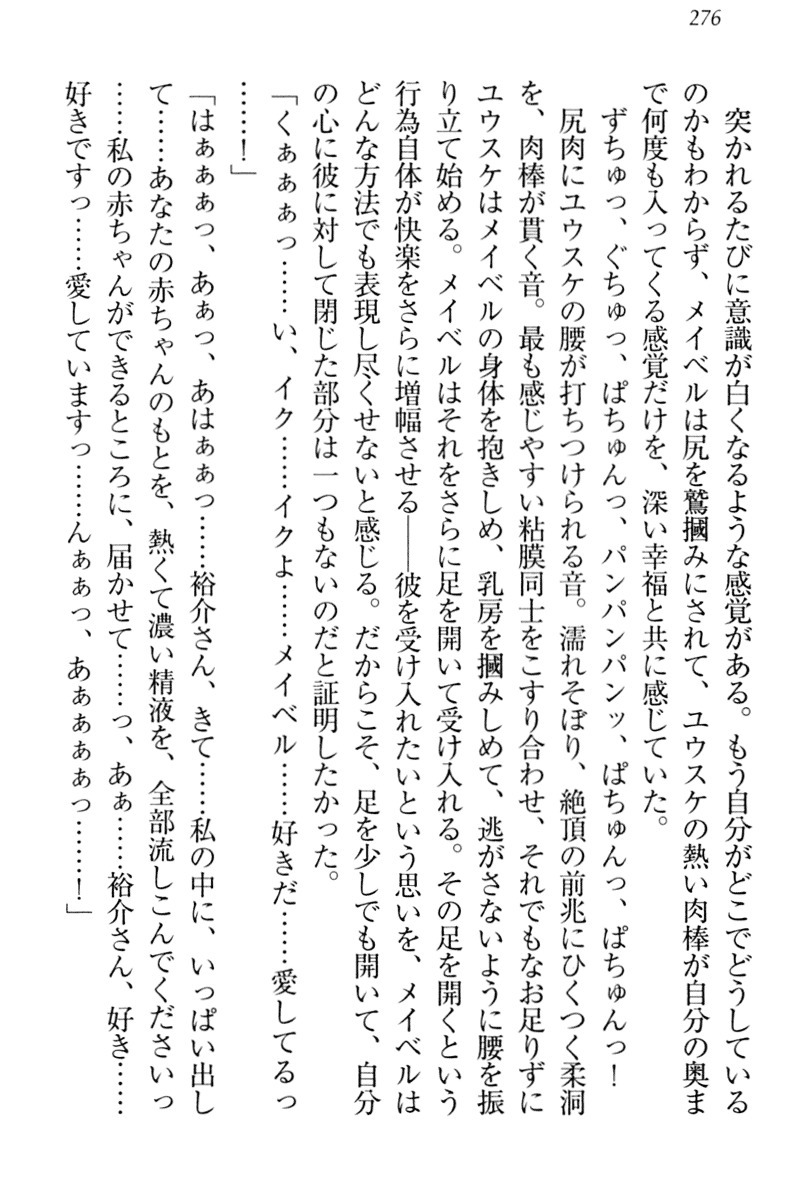 276
突かれるたびに意識が白くなるような感覚がある。もう自分がどこでどうしている
のかもわからず、メイベルは尻を鷲摑みにされて、ユウスケの熱い肉棒が自分の奥ま
で何度も入ってくる感覚だけを、深い幸福と共に感じていた。
ずちゅっ、ぐちゅっ、ぱちゅんっ、パンパンパンッ、ぱちゅんっ、ぱちゅんっ！
尻肉にユウスケの腰が打ちつけられる音。濡れそぼり、絶頂の前兆にひくつく柔洞
を、肉棒が貫く音。最も感じやすい粘膜同士をこすり合わせ、それでもなお足りずに
ユウスケはメイベルの身体を抱きしめ、乳房を摑みしめて、逃がさないように腰を振
り立て始める。メイベルはそれをさらに足を開いて受け入れる。その足を開くという
行為自体が快楽をさらに増幅させる――彼を受け入れたいという思いを、メイベルは
どんな方法でも表現し尽くせないと感じる。だからこそ、足を少しでも開いて、自分
の心に彼に対して閉じた部分は一つもないのだと証明したかった。
「くぁぁぁっ……い、イク……イクよ……メイベル……好きだ……愛してるっ
……！」
「はぁぁぁっ、あぁっ、あはぁぁっ……裕介さん、きて……私の中に、いっぱい出し
て……あなたの赤ちゃんのもとを、熱くて濃い精液を、全部流しこんでくださいっ
……私の赤ちゃんができるところに、届かせて……っ、あぁ……裕介さん、好き……
好きですっ……愛していますっ……んぁぁっ、あぁぁぁぁっ……！」